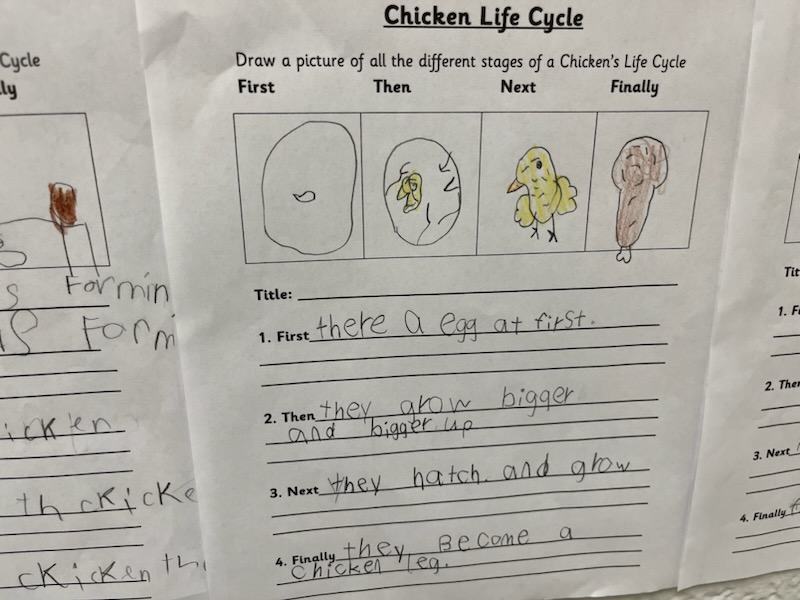 Chicken Life Cycle
Draw a picture of all the different stages of a Chicken's Life Cycle
First Then Next Finally
Title:
1. First there a egg at first.
2. Then they grow bigger
and bigger up
3. Next they hatch and grow
4. Finally they Become a
chicken leg.
Cycle
ly
s Formin
as Form
icken
th ckicke
ckicken th
Tit
1. Fi
2. Then
3. Next
4. Finally